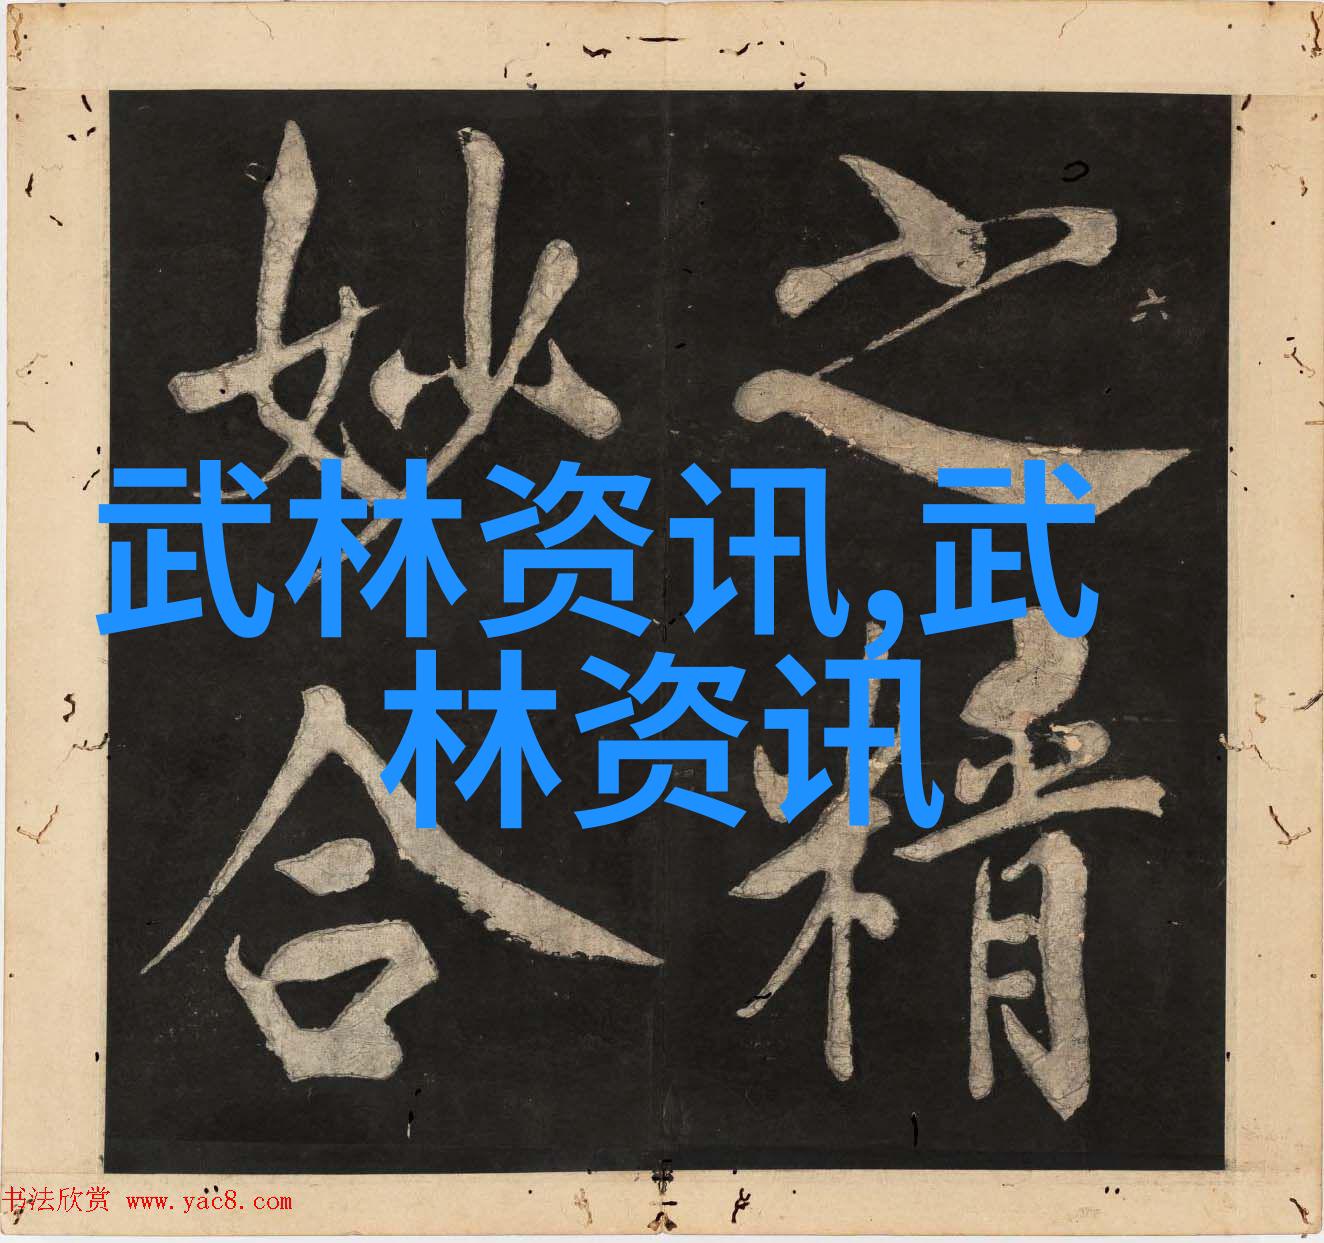 武林资讯,武
林资讯
之精
妙合
六
书法欣赏 www.yac8.com